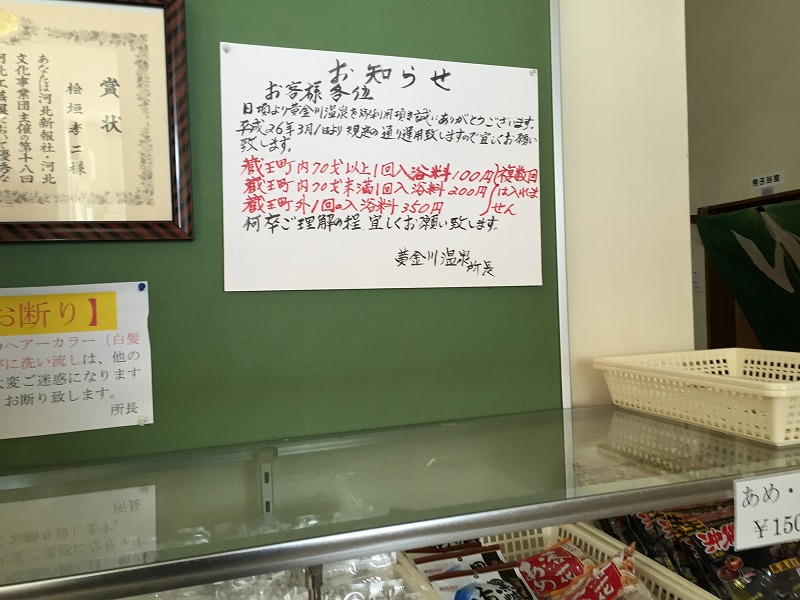 賞状
桧垣孝二様
あなたは河北新報社・河北
文化事業団主催の第十八回
河北工芸展において優秀な
お知らせ
お客様各位
日頃より黄金川温泉を御利用頂き誠にありがとうございます。
平成26年3月1日より規定の通り運用致しますので宜しくお願い
致します。
蔵王町内70才以上1回入浴料100円
蔵王町内70才未満1回入浴料200円
蔵王町外1回の入浴料350円
複数回
は入れま
せん
何卒ご理解の程 宜しくお願い致します。
黄金川温泉
所長
お断り】
ヘアーカラー(白髪
に洗い流しは、他の
大変ご迷惑になります
お断り致します。
所長
男子浴室
あめ・
¥150